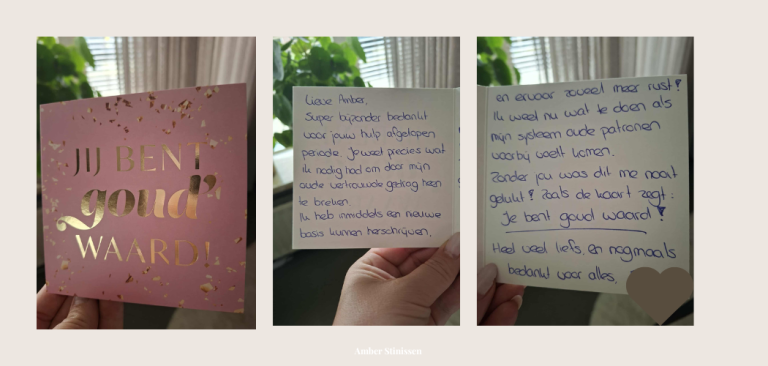 JIJ BENT
goud
WAARD!
Lieve Amber,
Super bijzonder bedankt
voor jouw hulp afgelopen
periode. Jij weet precies wat
ik nodig had om door mijn
oude vertrouwde gedrag heen
te breken.
Ik heb inmiddels een nieuwe
basis kunnen herschrijven,
en ervaar zoveel meer rust!
Ik weet nu wat te doen als
mijn systeem oude patronen
voorbij voelt komen.
Zonder jou was dit me nooit
gelukt! Zoals de kaart zegt:
Je bent goud waard!
Heel veel liefs, en nogmaals
bedankt voor alles,
Amber Slinissen